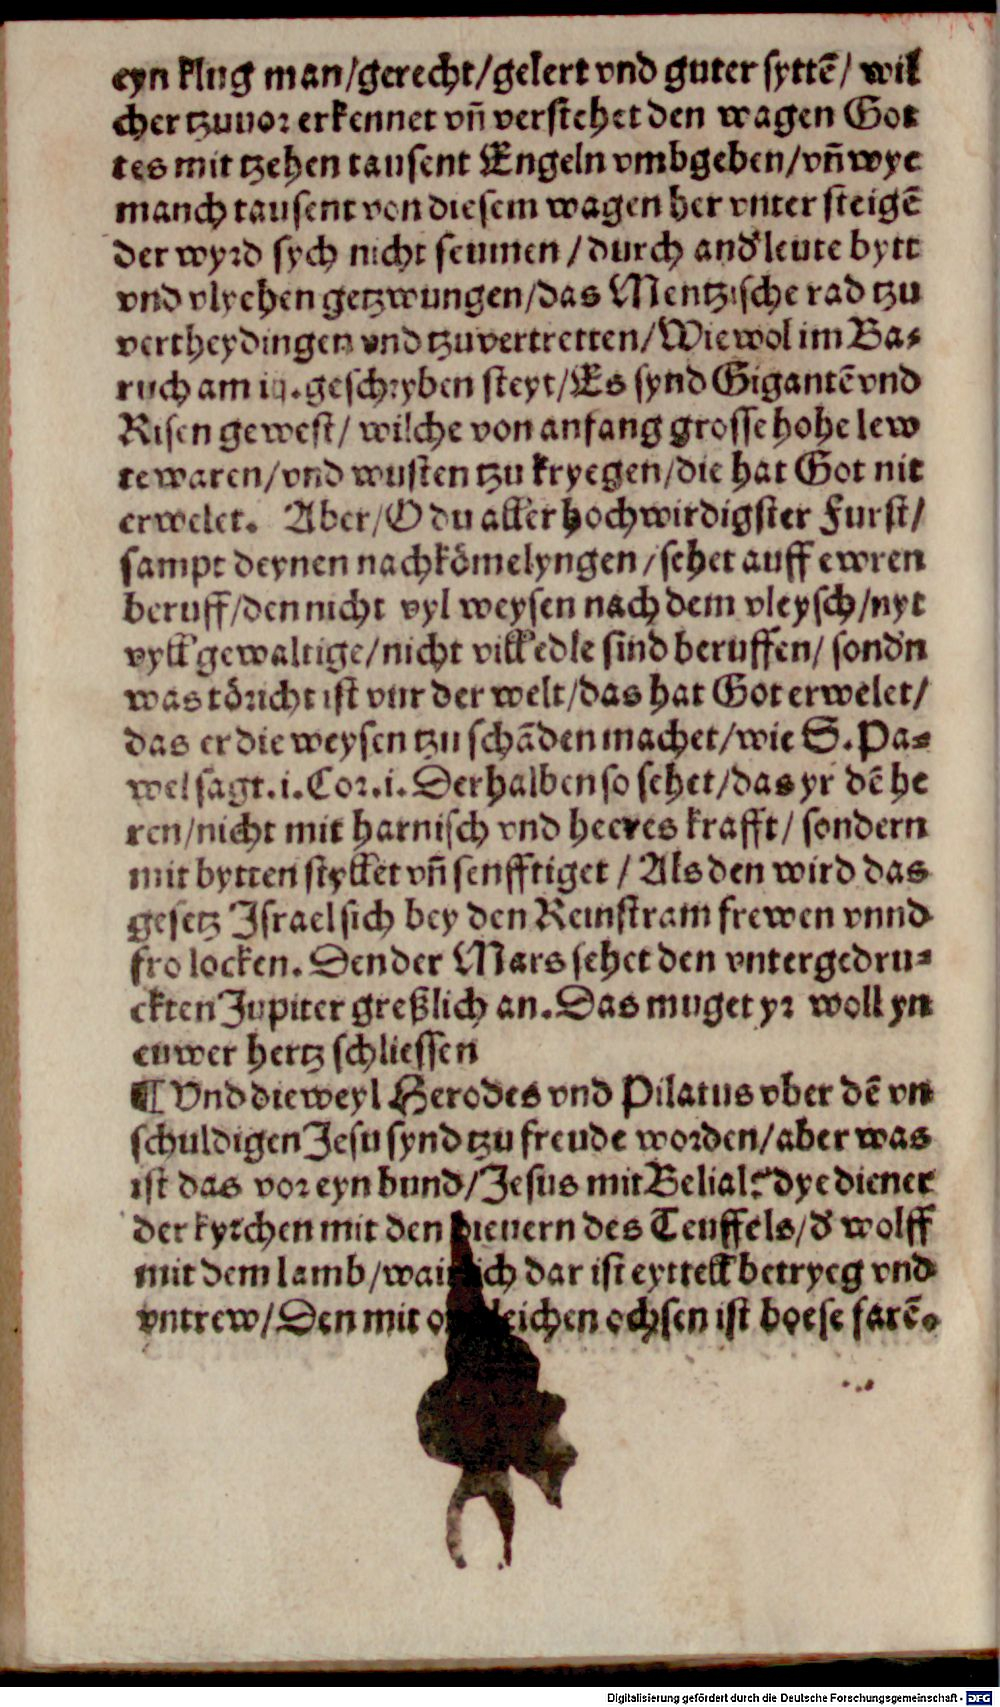 eyn klug man/gerecht/gelert vnd guter syttē/ wil
cher tzuuor erkennet vn̄ verstehet den wagen Got
tes mit tzehen tausent Engeln vmbgeben/vn̄ wye
manch tausent von diesem wagen her vnter steigē
der wyrd sych nicht seumen/durch and̕ leute bytt
vnd vlyehen getzwungen/das Mentzische rad tzu
vertheydingen vnd tzuvertretten/Wiewol im Ba⸗
ruch am iij.geschryben steyt/Es synd Gigantē vnd
Risen gewest/ wilche von anfang grosse hohe lew
te waren/vnd wusten tzu kryegen/die hat Got nit
erwelet. Aber/O du aller hochwirdigster Furst/
sampt deynen nachkömelyngen/sehet auff ewren
beruff/den nicht vyl weysen nach dem vleysch/nyt
vyll gewaltige/nicht vill edle sind beruffen/ sond̕n
was töricht ist vnr der welt/das hat Got erwelet/
das er die weysen tzu schāden machet/wie S.Pa⸗
wel sagt.i.Cor.i.Derhalben so sehet/das yr dē he
ren/nicht mit harnisch vnd heeres krafft/ sondern
mit bytten styllet vn̄ senfftiget/ Als den wird das
gesetz Israel sich bey den Reinstram frewen vnnd
fro locken. Den der Mars sehet den vntergedru⸗
ckten Jupiter greßlich an.Das muget yr woll yn
euwer hertz schliessen
¶ Vnd dieweyl Herodes vnd Pilatus vber dē vn
schuldigen Jesu synd tzu freude worden/aber was
ist das vor eyn bund/Jesus mit Belial? dye diener
der kyrchen mit den dienern des Teuffels/d̕ wolff
mit dem lamb/ dar ist eyttell betryeg vnd
vntrew/Den mit ochsen ist boese farē.
Digitalisierung gefördert durch die Deutsche Forschungsgemeinschaft - DFG